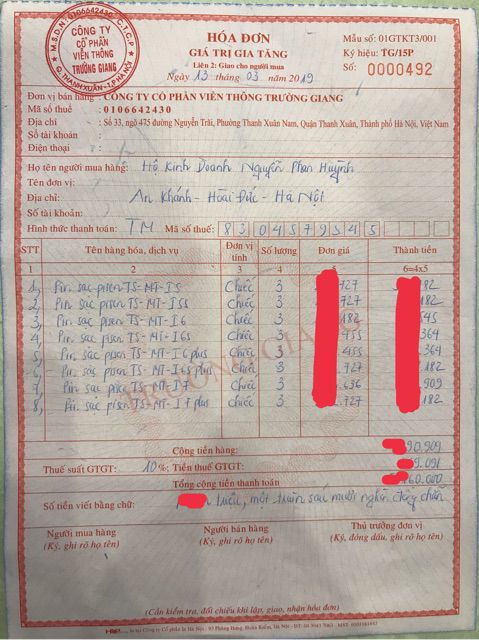 M.S.D.N: 0106642430 - C.T.C.P
CÔNG TY
CỔ PHẦN
VIỄN THÔNG
TRƯỜNG GIANG
Q. THANH XUÂN - T.P HÀ NỘI
HÓA ĐƠN
GIÁ TRỊ GIA TĂNG
Liên 2: Giao cho người mua
Ngày 13 tháng 03 năm 2019
Mẫu số: 01GTKT3/001
Ký hiệu: TG/15P
Số: 0000492
Đơn vị bán hàng: CÔNG TY CỔ PHẦN VIỄN THÔNG TRƯỜNG GIANG
Mã số thuế : 0106642430
Địa chỉ : Số 33, ngõ 475 đường Nguyễn Trãi, Phường Thanh Xuân Nam, Quận Thanh Xuân, Thành phố Hà Nội, Việt Nam
Số tài khoản :
Điện thoại :
Họ tên người mua hàng: Hộ Kinh Doanh Nguyễn Phan Huỳnh
Tên đơn vị:
Địa chỉ: An Khánh - Hoài Đức - Hà Nội
Số tài khoản:
Hình thức thanh toán: TM Mã số thuế: 8304579345
STT Tên hàng hóa, dịch vụ Đơn vị tính Số lượng Đơn giá Thành tiền
1 2 3 4 5 6=4x5
1, Pin sạc pisen TS-MT-I5 Chiếc 3 .727 182
2, Pin sạc pisen TS-MT-I5S Chiếc 3 .727 .182
3, Pin sạc pisen TS-MT-I6 Chiếc 3 .182 545
4, Pin sạc pisen TS-MT-I6S Chiếc 3 455 .364
5, Pin sạc pisen TS-MT-I6 plus Chiếc 3 .455 .364
6, Pin sạc pisen TS-MT-I6S plus Chiếc 3 .727 .182
7, Pin sạc pisen TS-MT-I7 Chiếc 3 .636 .909
8, Pin sạc pisen TS-MT-I7 plus Chiếc 3 .727 .182
TRƯỜNG GIANG
Cộng tiền hàng: 90.909
Thuế suất GTGT: 10 %; Tiền thuế GTGT: 9.091
Tổng cộng tiền thanh toán: 60.000
Số tiền viết bằng chữ: triệu, một trăm sáu mươi nghìn đồng chẵn
Người mua hàng Người bán hàng Thủ trưởng đơn vị
(Ký, ghi rõ họ tên) (Ký, ghi rõ họ tên) (Ký, đóng dấu, ghi rõ họ tên)
(Cần kiểm tra, đối chiếu khi lập, giao, nhận hóa đơn)